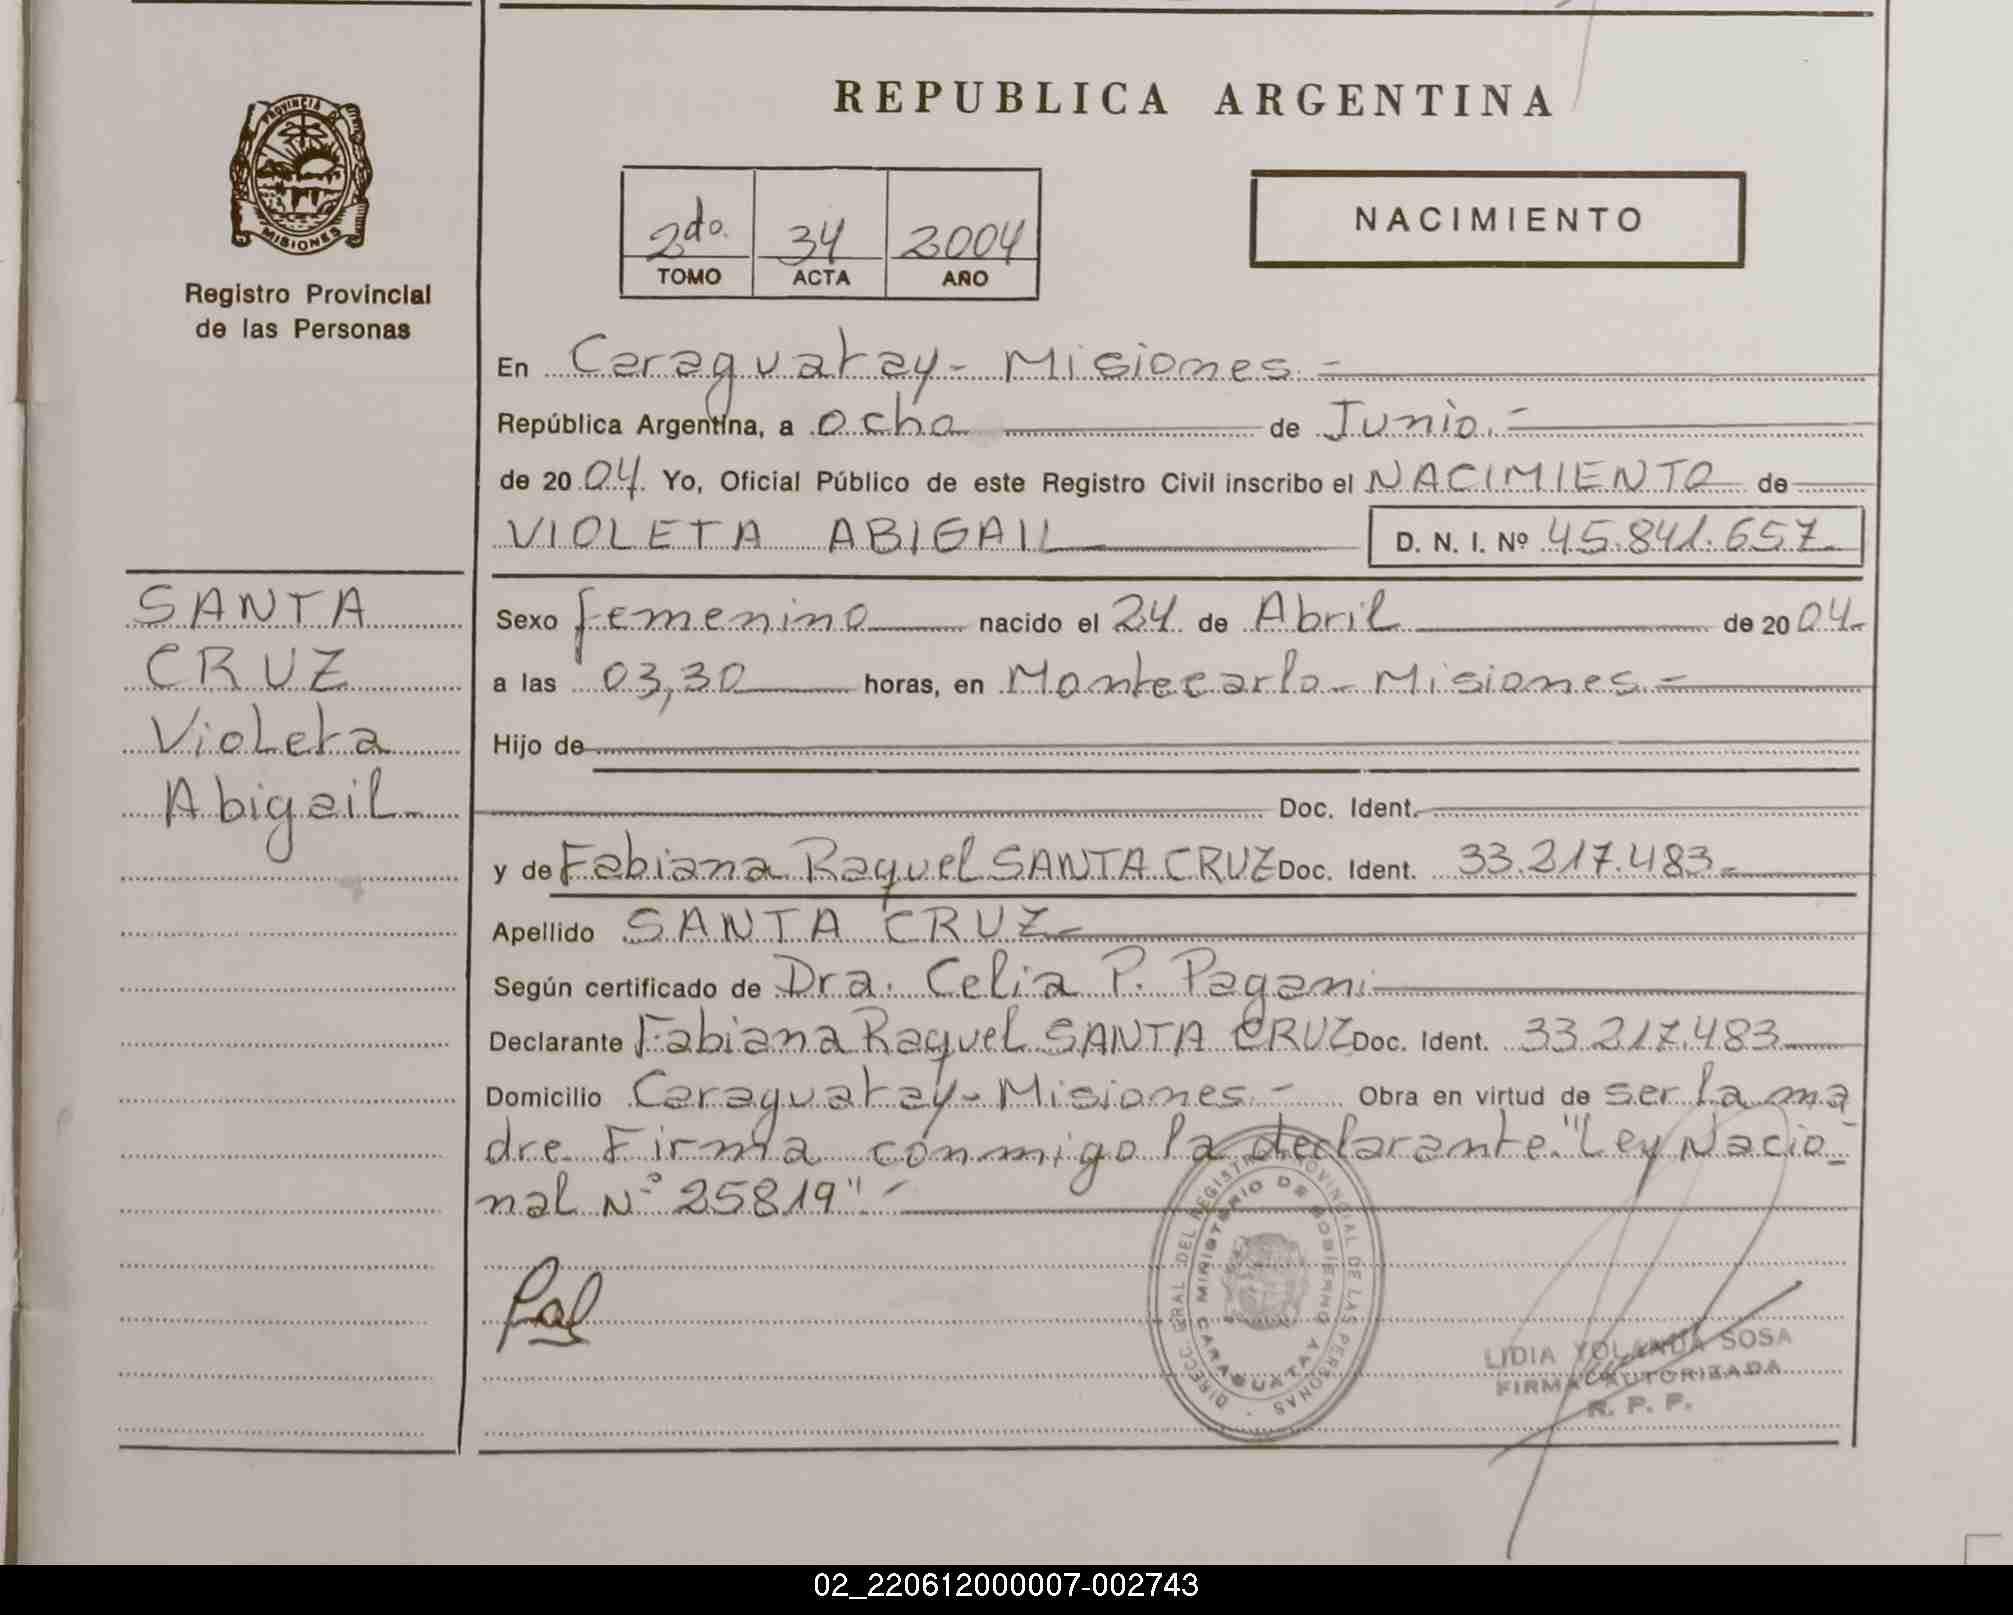 REPUBLICA ARGENTINA
PROVINCIA
MISIONES
Registro Provincial
de las Personas
2do. 34 2004
TOMO ACTA AÑO
NACIMIENTO
En Caraguatay - Misiones.-
República Argentina, a ocho de Junio.-
de 2004. Yo, Oficial Público de este Registro Civil inscribo el NACIMIENTO de
VIOLETA ABIGAIL D. N. I. Nº 45.841.657
SANTA
CRUZ
Violeta
Abigail
Sexo femenino nacido el 24 de Abril de 2004
a las 03,30 horas, en Montecarlo - Misiones.-
Hijo de
Doc. Ident.
y de Fabiana Raquel SANTA CRUZ Doc. Ident. 33.217.483.-
Apellido SANTA CRUZ-
Según certificado de Dra. Celia P. Pagani
Declarante Fabiana Raquel SANTA CRUZ Doc. Ident. 33.217.483
Domicilio Caraguatay - Misiones.- Obra en virtud de ser la ma
dre. Firma conmigo la declarante. "Ley Nacio-
nal Nº 25819".-
DIRECC. GRAL. DEL REGISTRO PROVINCIAL DE LAS PERSONAS -
MINISTERIO DE GOBIERNO
CARAGUATAY
LIDIA YOLANDA SOSA
FIRMA AUTORIZADA
R. P. P.
02_220612000007-002743